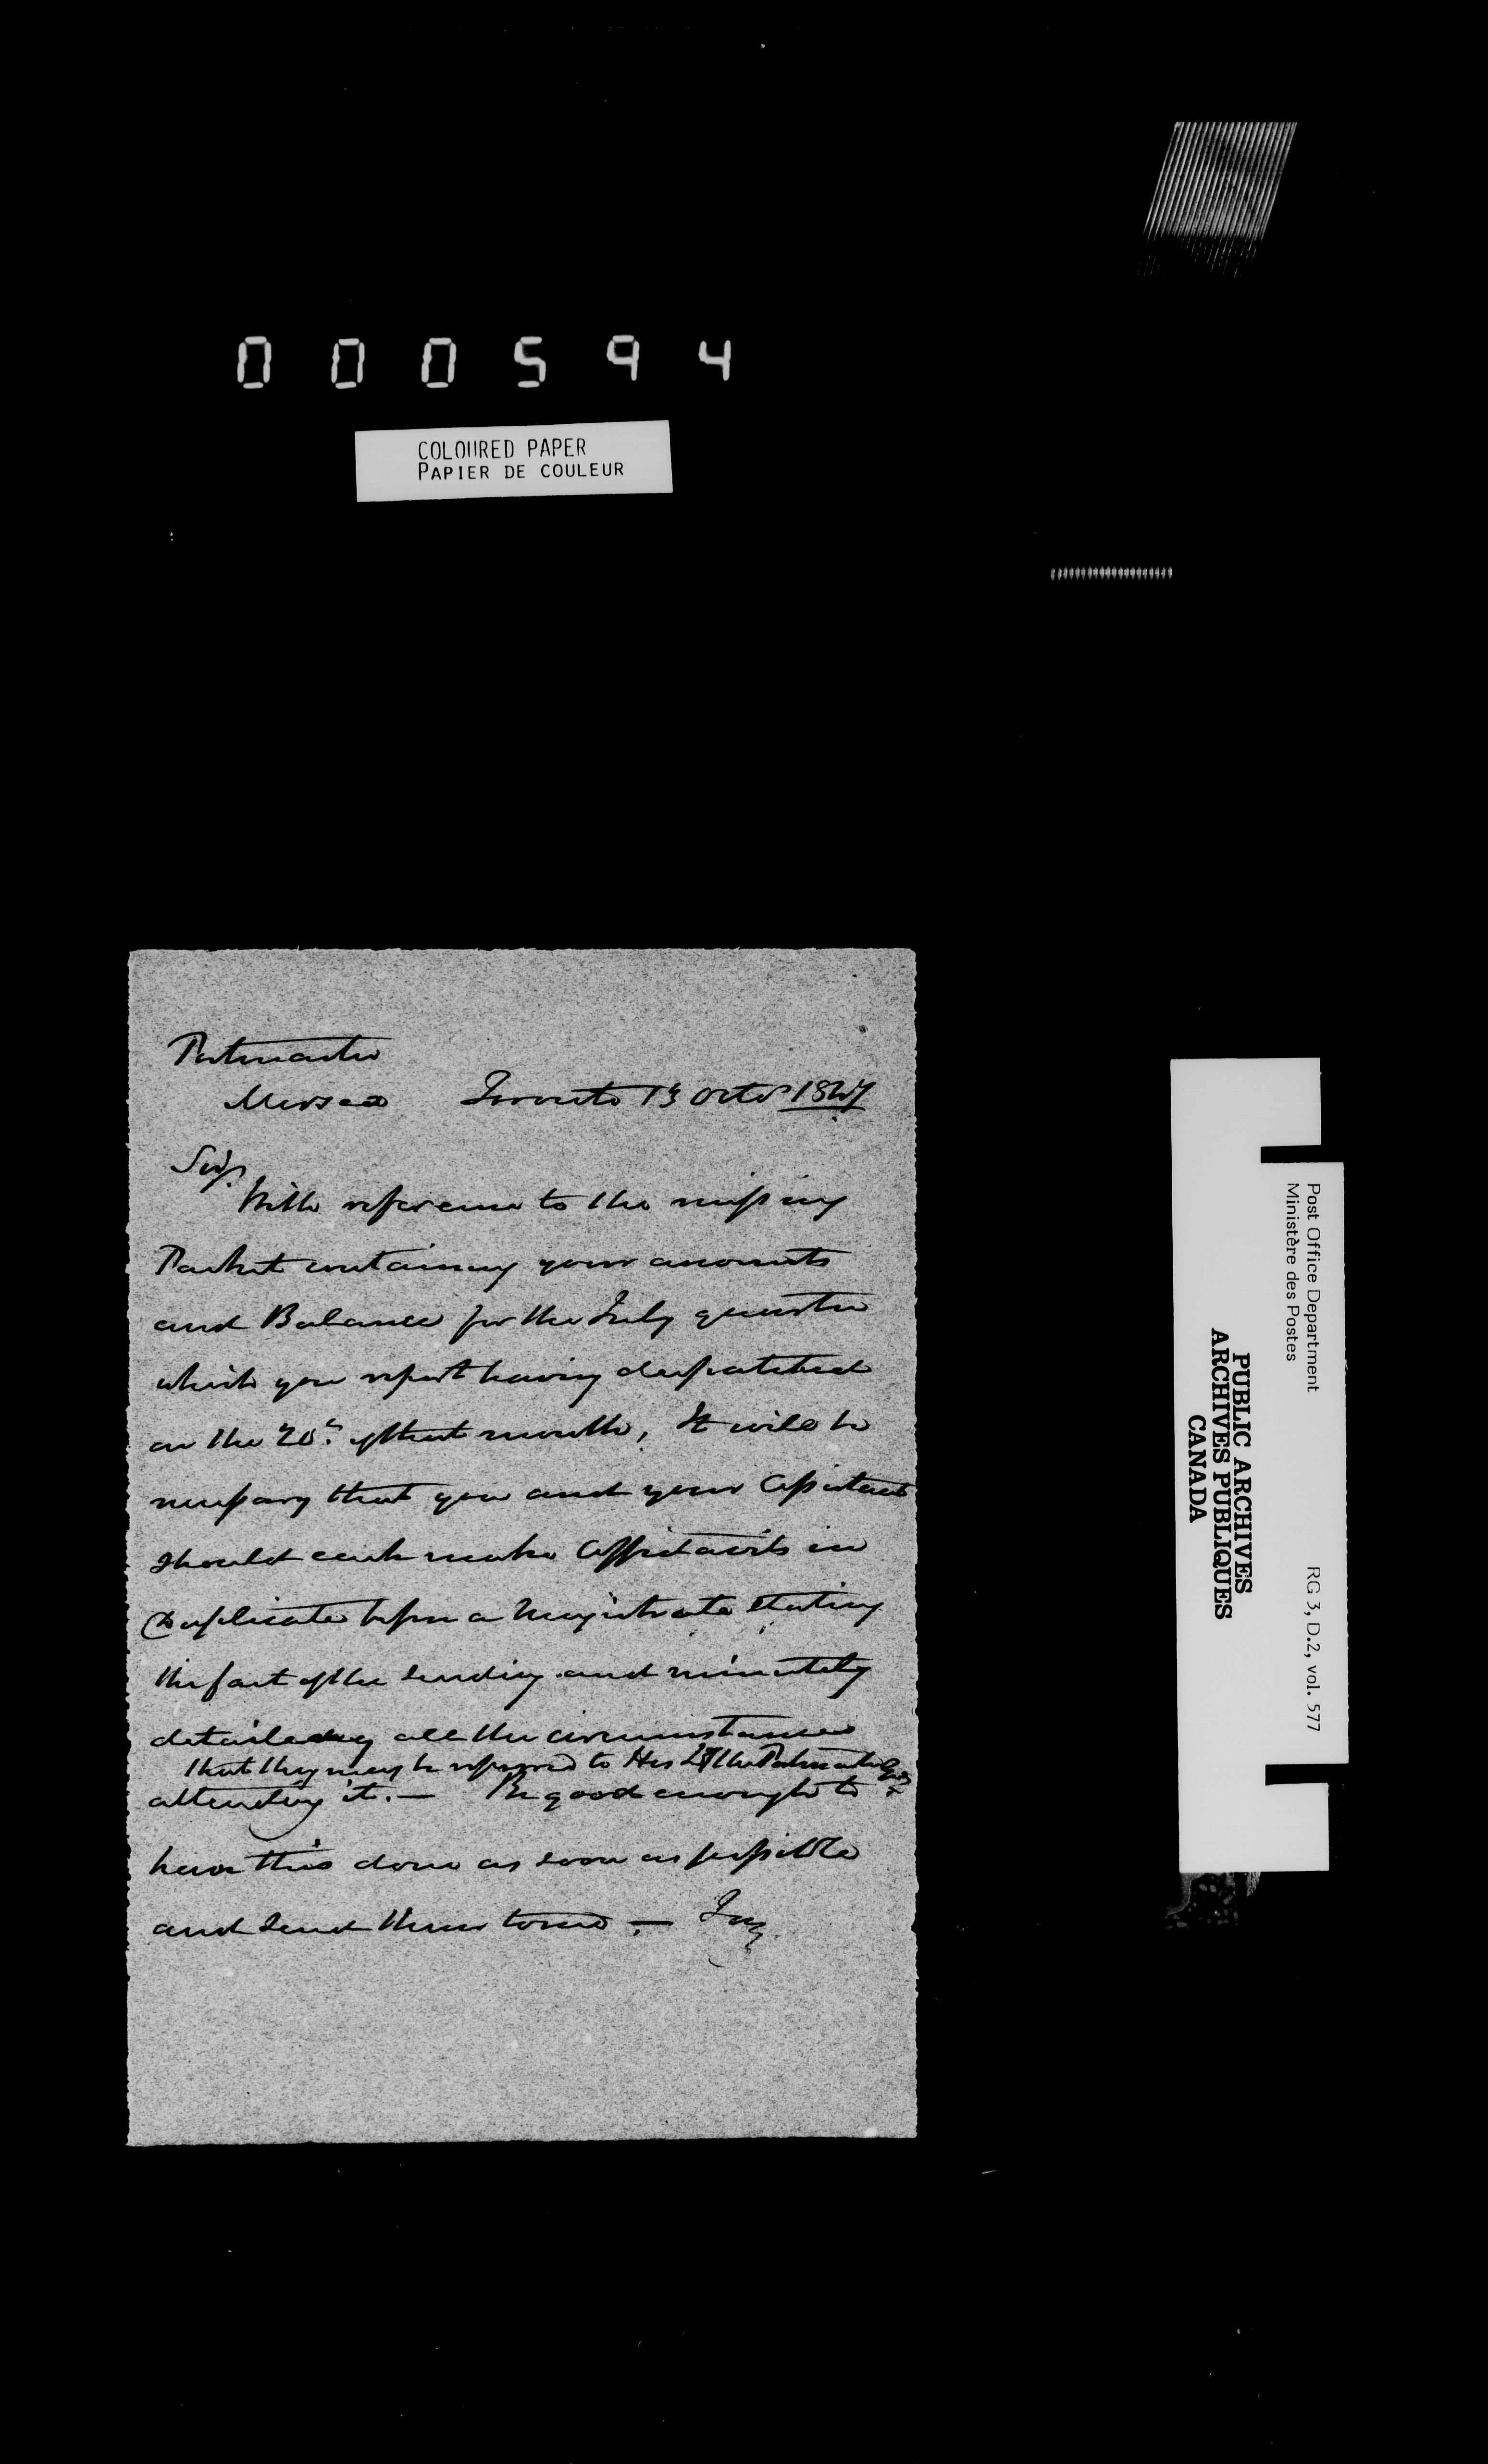 000594
COLOURED PAPER
PAPIER DE COULEUR
Postmaster
Mersea Toronto 13 Octr 1847
Sir,
With reference to the missing
Packet containing your accounts
and Balance for the July quarter
which you report having despatched
on the 20th of that month, It will be
necessary that you and your Assistant
should each make Affidavits in
Duplicate before a Magistrate stating
the fact of the sending and minutely
detailing all the circumstances
that they may be referred to His the Postmaster Genl
attending it. — Be good enough to
have this done as soon as possible
and send them to me. —
Post Office Department
Ministère des Postes
RG 3, D.2, vol. 577
PUBLIC ARCHIVES
ARCHIVES PUBLIQUES
CANADA